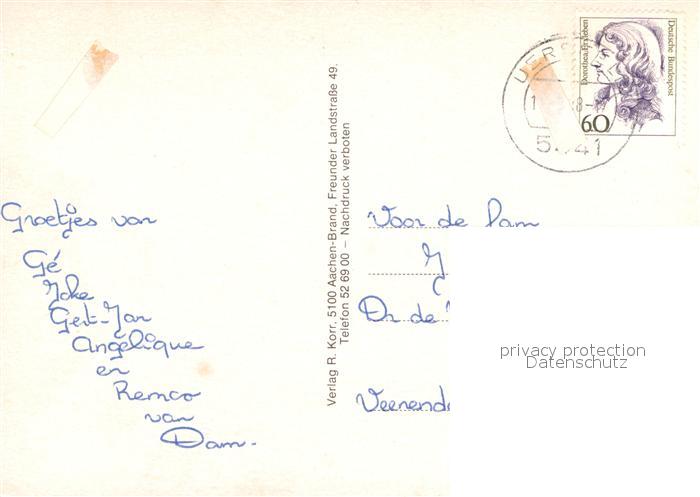 Groetjes van
Gé
Joke
Gert-Jan
Angelique
en
Remco
van
Dam-
Verlag R. Korr, 5100 Aachen-Brand, Freunder Landstraße 49.
Telefon 52 69 00 – Nachdruck verboten
Deutsche Bundespost
Dorothea Erxleben
60
Voor de fam
Veenend
privacy protection
Datenschutz